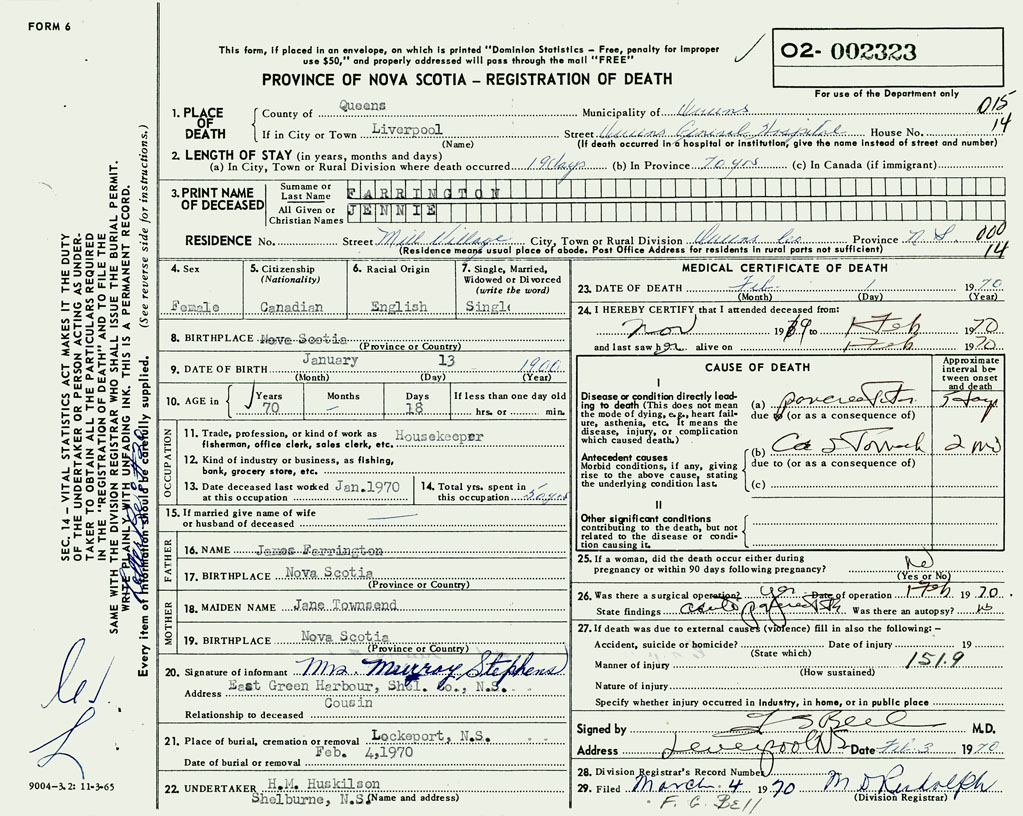 FORM 6
This form, if placed in an envelope, on which is printed "Dominion Statistics – Free, penalty for improper
use $50," and properly addressed will pass through the mail "FREE"
PROVINCE OF NOVA SCOTIA – REGISTRATION OF DEATH
02- 002323
For use of the Department only
015
14
1. PLACE OF DEATH
County of Queens Municipality of Queens
If in City or Town Liverpool Street Queens General Hospital House No.
(Name) (If death occurred in a hospital or institution, give the name instead of street and number)
2. LENGTH OF STAY (in years, months and days)
(a) In City, Town or Rural Division where death occurred 19 days (b) In Province 70 yrs (c) In Canada (if immigrant)
3. PRINT NAME OF DECEASED
Surname or Last Name FARRINGTON
All Given or Christian Names JENNIE
RESIDENCE No. Street Mill Village City, Town or Rural Division Queens Co Province N.S.
000
14
(Residence means usual place of abode. Post Office Address for residents in rural parts not sufficient)
4. Sex
Female
5. Citizenship
(Nationality)
Canadian
6. Racial Origin
English
7. Single, Married,
Widowed or Divorced
(write the word)
Single
8. BIRTHPLACE Nova Scotia
(Province or Country)
9. DATE OF BIRTH January 13 1900
(Month) (Day) (Year)
10. AGE in Years 70 Months – Days 18 If less than one day old
hrs. or min.
OCCUPATION
11. Trade, profession, or kind of work as Housekeeper
fisherman, office clerk, sales clerk, etc.
12. Kind of industry or business, as fishing,
bank, grocery store, etc.
13. Date deceased last worked Jan.1970
at this occupation
14. Total yrs. spent in
this occupation 5 yrs
15. If married give name of wife
or husband of deceased
FATHER
16. NAME James Farrington
17. BIRTHPLACE Nova Scotia
(Province or Country)
MOTHER
18. MAIDEN NAME Jane Townsend
19. BIRTHPLACE Nova Scotia
(Province or Country)
20. Signature of informant Mrs. Murray Stephens
Address East Green Harbour, Shel. Co., N.S.
Cousin
Relationship to deceased
21. Place of burial, cremation or removal Lockeport, N.S.
Feb. 4,1970
Date of burial or removal
22. UNDERTAKER H.M. Huskilson
Shelburne, N.S. (Name and address)
MEDICAL CERTIFICATE OF DEATH
23. DATE OF DEATH Feb. 1 1970
(Month) (Day) (Year)
24. I HEREBY CERTIFY that I attended deceased from:
Nov 1969 to 1 Feb 1970
and last saw her alive on 1 Feb 1970
CAUSE OF DEATH
Approximate
interval be-
tween onset
and death
I
Disease or condition directly lead-
ing to death (This does not mean
the mode of dying, e.g., heart fail-
ure, asthenia, etc. It means the
disease, injury, or complication
which caused death.)
(a) 5 days
due to (or as a consequence of)
Antecedent causes
Morbid conditions, if any, giving
rise to the above cause, stating
the underlying condition last.
(b) Ca Stomach
due to (or as a consequence of)
(c)
II
Other significant conditions
contributing to the death, but not
related to the disease or condi-
tion causing it.
25. If a woman, did the death occur either during
pregnancy or within 90 days following pregnancy? No
(Yes or No)
26. Was there a surgical operation? yes Date of operation 1 Feb 1970
State findings Was there an autopsy? no
27. If death was due to external causes (violence) fill in also the following: –
Accident, suicide or homicide? Date of injury 19
(State which)
Manner of injury 151.9
(How sustained)
Nature of injury
Specify whether injury occurred in industry, in home, or in public place
Signed by F G Bell M.D.
Address Liverpool NS Date Feb 3 1970
28. Division Registrar's Record Number
29. Filed March 4 1970 M D Rudolph
(Division Registrar)
F. G. Bell
SEC. 14 – VITAL STATISTICS ACT MAKES IT THE DUTY
OF THE UNDERTAKER OR PERSON ACTING AS UNDER-
TAKER TO OBTAIN ALL THE PARTICULARS REQUIRED
IN THE "REGISTRATION OF DEATH" AND TO FILE THE
SAME WITH THE DIVISION REGISTRAR WHO SHALL ISSUE THE BURIAL PERMIT.
WRITE PLAINLY WITH UNFADING INK. THIS IS A PERMANENT RECORD.
Every item of information should be carefully supplied. (See reverse side for instructions.)
9004-3.2: 11-3-65